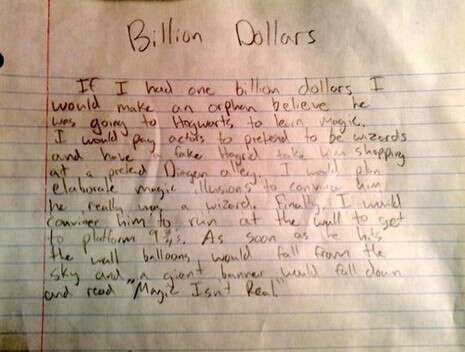 Billion Dollars
If I had one billion dollars I
would make an orphan believe he
was going to Hogwarts to learn magic.
I would pay actors to pretend to be wizards
and have a fake Hagrid take him shopping
at a pretend Diagon alley. I would plan
elaborate magic illusions to convince him
he really was a wizard. Finally I would
convince him to run at the wall to get
to platform 9 3/4's. As soon as he hits
the wall balloons would fall from the
sky and a giant banner would fall down
and read "Magic Isn't Real."